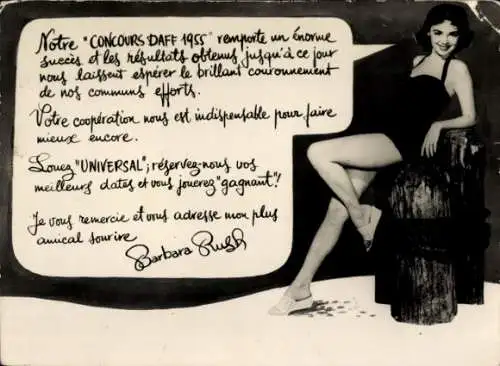 Notre "CONCOURS DAFF 1955" remporte un énorme
succès et les résultats obtenus jusqu'à ce jour
nous laissent espérer le brillant couronnement
de nos communs efforts.
Votre coopération nous est indispensable pour faire
mieux encore.
Louez "UNIVERSAL"; réservez-nous vos
meilleurs dates et vous jouerez "gagnant"!
Je vous remercie et vous adresse mon plus
amical sourire
Barbara Rush